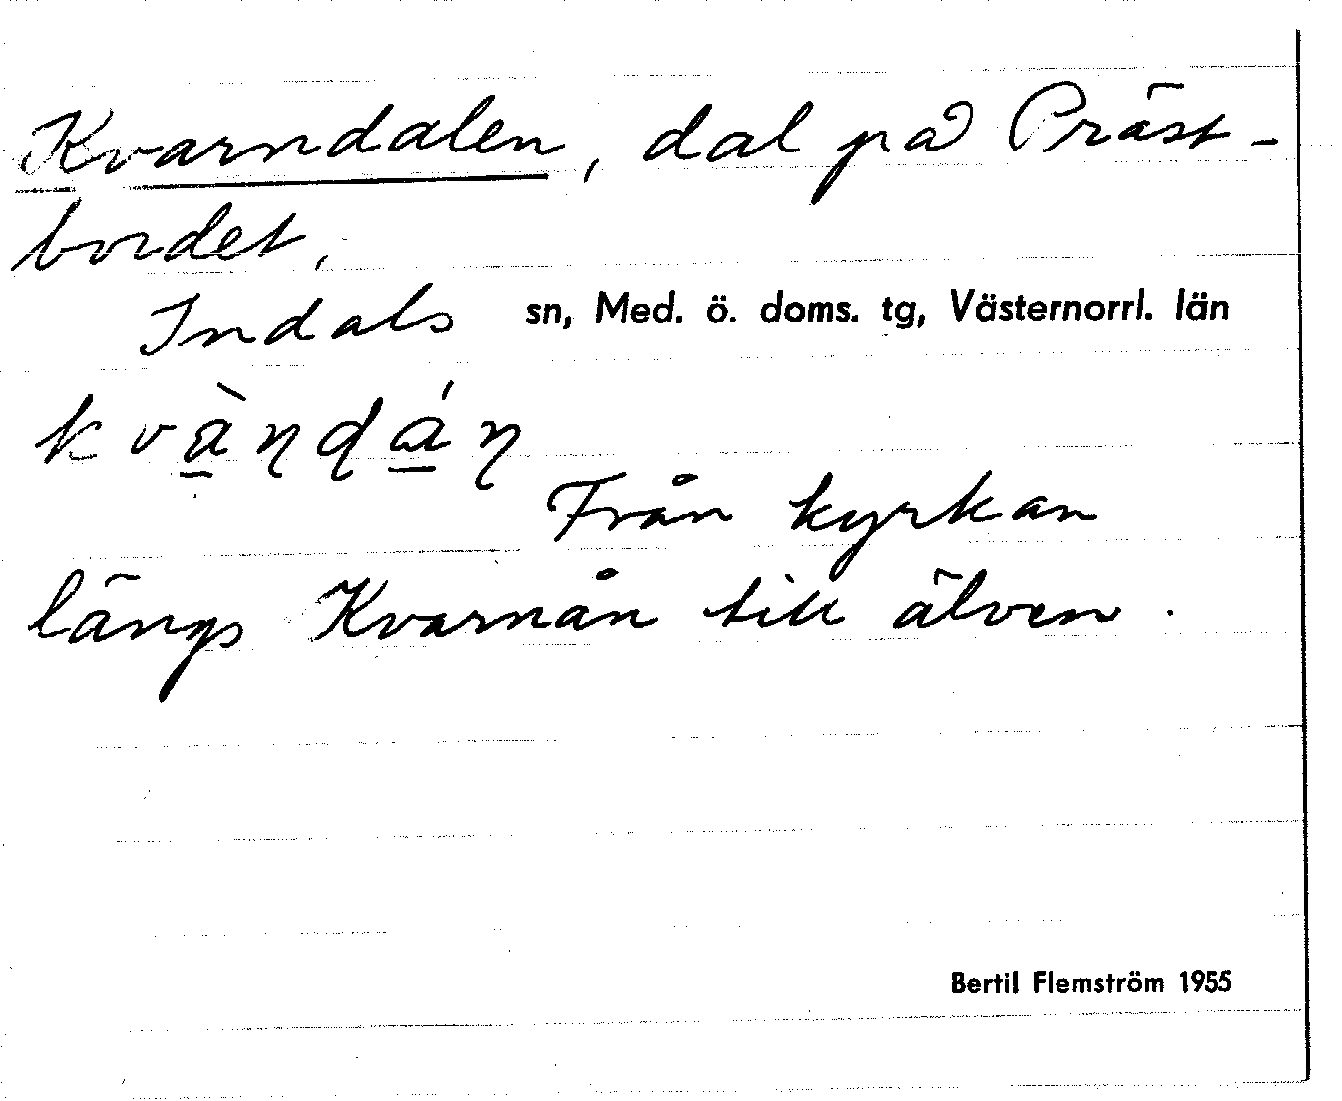 Kvarndalen, dal på Präst-
bordet,
Indals sn, Med. ö. doms. tg, Västernorrl. län
kvàn̠ɖán̠
Från kyrkan
längs Kvarnån till älven.
Bertil Flemström 1955